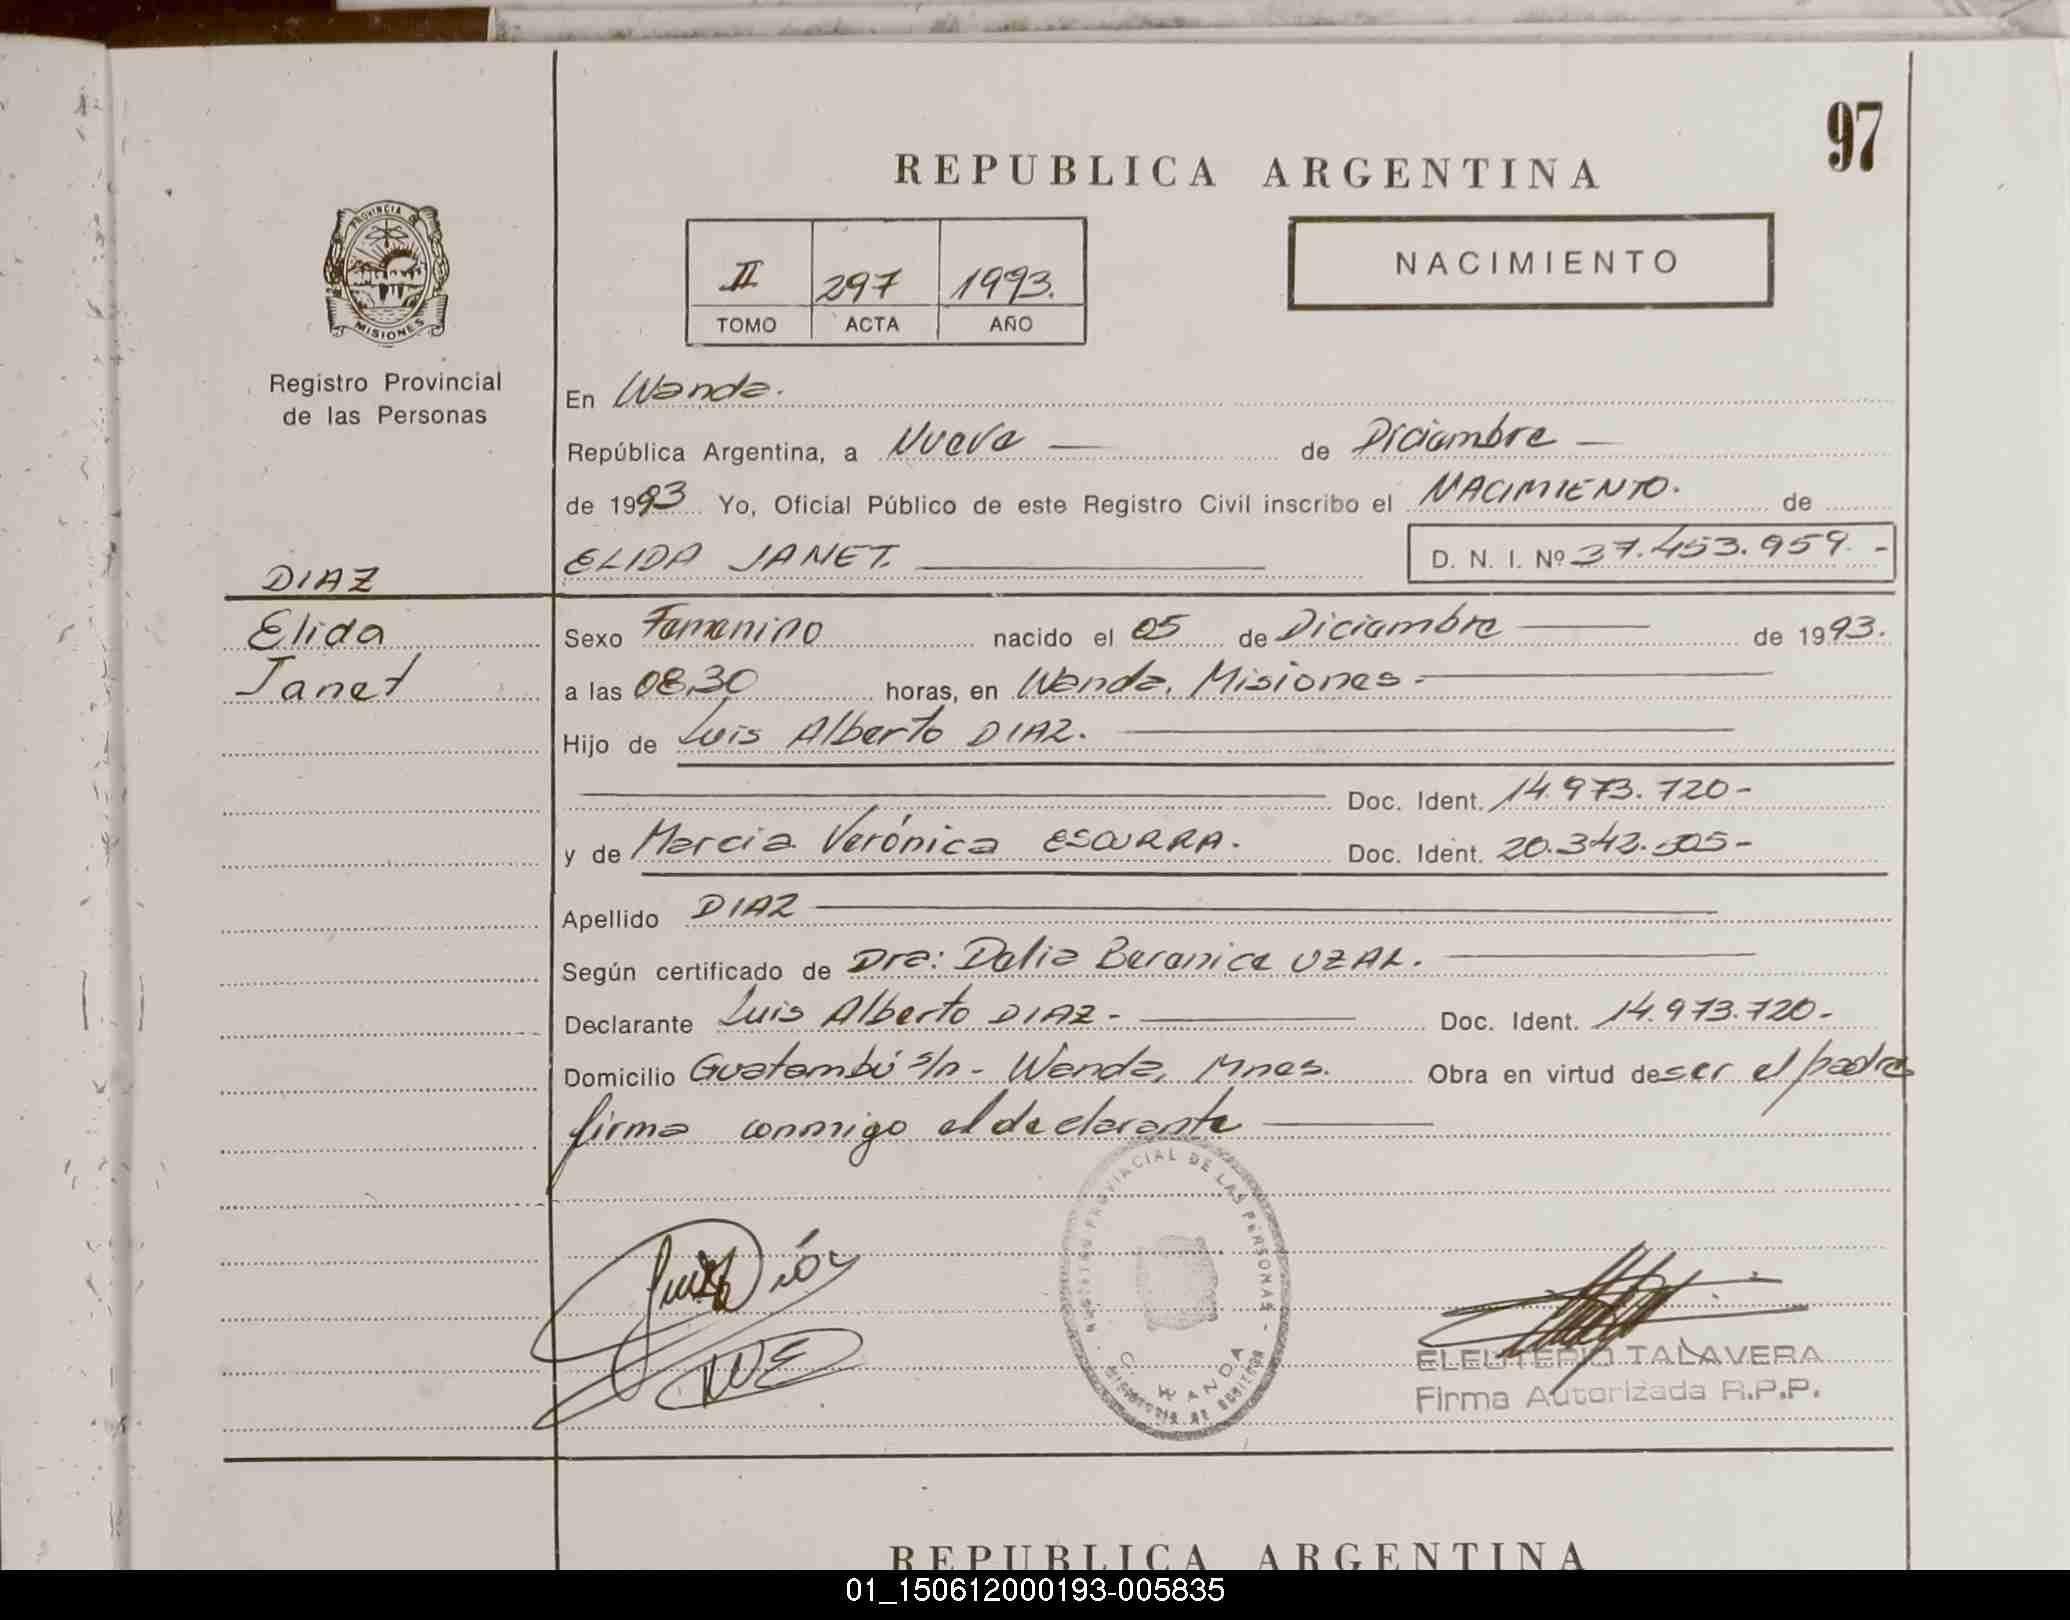 97
REPUBLICA ARGENTINA
PROVINCIA DE
MISIONES
II 297 1993.
TOMO ACTA AÑO
NACIMIENTO
Registro Provincial
de las Personas
En Wanda.
República Argentina, a Nueve de Diciembre
de 1993 Yo, Oficial Público de este Registro Civil inscribo el NACIMIENTO. de
ELIDA JANET. D. N. I. Nº 37.453.959.-
DIAZ
Elida
Janet
Sexo Femenino nacido el 05 de Diciembre de 1993.
a las 08,30 horas, en Wanda, Misiones.
Hijo de Luis Alberto DIAZ.
Doc. Ident. 14.973.720-
y de Marcia Verónica ESCURRA. Doc. Ident. 20.342.505-
Apellido DIAZ
Según certificado de Dra: Delia Beranice UZAL.
Declarante Luis Alberto DIAZ- Doc. Ident. 14.973.720-
Domicilio Guatambú s/n- Wanda, Mnes. Obra en virtud de ser el padre
firma conmigo el declarante
REGISTRO PROVINCIAL DE LAS PERSONAS -
WANDA
ELEUTERIO TALAVERA
Firma Autorizada R.P.P.
REPUBLICA ARGENTINA
01_150612000193-005835